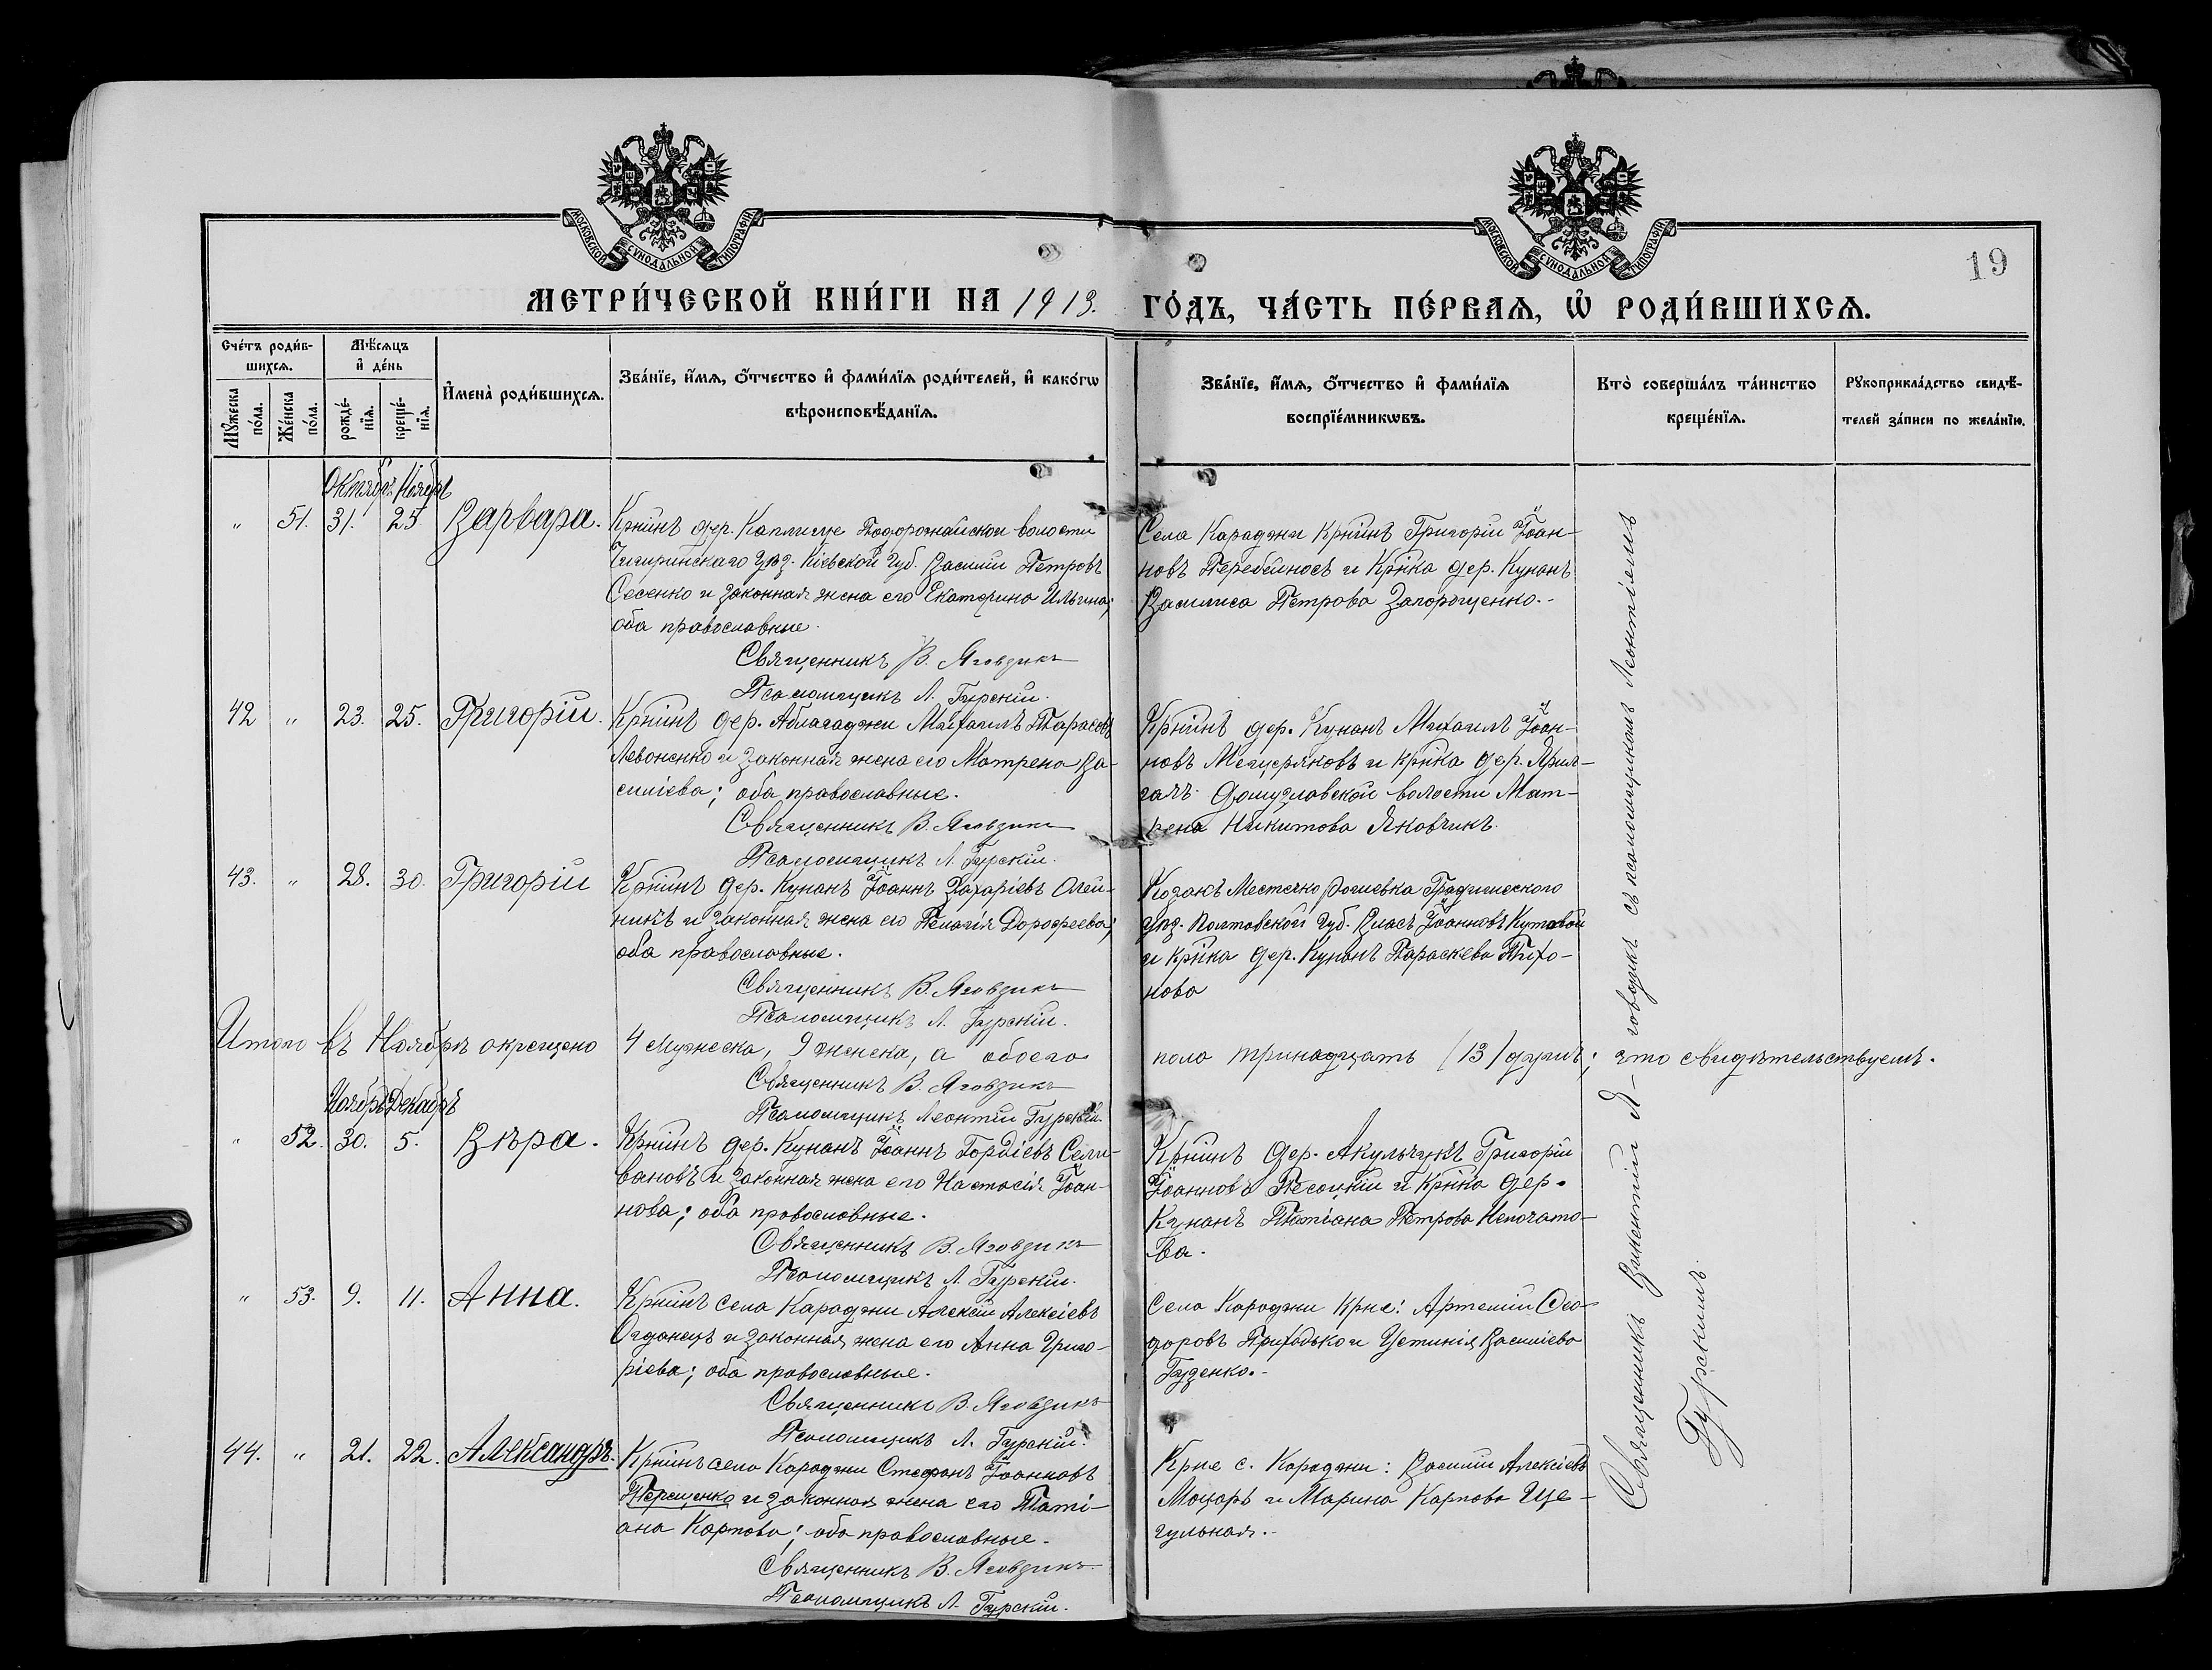 МОСКОВСКОЙ СѴНОДАЛЬНОЙ ТИПОГРАФІИ
МОСКОВСКОЙ СѴНОДАЛЬНОЙ ТИПОГРАФІИ
19
МЕТРИ́ЧЕСКОЙ КНИ́ГИ НА 1913. ГО́ДЪ, ЧА́СТЬ ПЕ́РВАѦ, Ѡ҆ РОДИ́ВШИХСѦ.
Сче́тъ роди́в-
шихсѧ.
Мꙋжеска по́ла.
Же́нска по́ла.
Мѣ́сѧцъ
и҆ де́нь
рожде́-
нїѧ.
креще́-
нїѧ.
И҆мена̀ роди́вшихсѧ.
Зва́нїе, и҆́мѧ, ѻ҆́тчество и҆ фами́лїѧ роди́телей, и҆ како́гѡ
вѣроисповѣ́данїѧ.
Зва́нїе, и҆́мѧ, ѻ҆́тчество и҆ фами́лїѧ
воспрїе́мникѡвъ.
Кто̀ соверша́лъ та́инство
креще́нїѧ.
Рꙋкоприкла́дство свидѣ́-
телей за́писи по жела́нїю.
Октябр. Ноябрь
" 51. 31. 25. Варвара.
Крнинъ дер. Каплище Подорожайской волости
Чигиринскаго уѣз. Кіевской Губ. Василій Петровъ
Сесенко и законная жена его Екатерина Ильина;
оба православные.
Священникъ В. Яговдикъ
Псаломщикъ Л. Гурскій.
Села Караджи Крнинъ Григорій Іоан-
новъ Перебейносъ и Крнка дер. Кунанъ
Василиса Петрова Запорощенко.-
42 " 23. 25. Григорій.
Крнинъ дер. Аблагаджи Михаилъ Тарасовъ
Левоненко и законная жена его Матрена Ва-
силіева; оба православные.
Священникъ В. Яговдикъ
Псаломщикъ Л. Гурскій.
Крнинъ дер. Кунанъ Михаилъ Іоан-
новъ Мещеряковъ и крнка дер. Ярил-
гачъ Домузлавской волости Мат-
рена Никитова Яковчикъ.
43. " 28. 30. Григорій
Крнинъ дер. Кунанъ Іоаннъ Захаріевъ Олей-
никъ и законная жена его Пелагія Дорофеева;
оба православные.
Священникъ В. Яговдикъ
Псаломщикъ Л. Гурскій.
Козакъ Местечко Градижеского
уѣз. Полтовской Губ. Власъ Іоанновъ Кутовой
и крнка дер. Кунанъ Параскева Тихо-
нова
Итого въ Ноябрѣ окрещено 4 мужеска, 9 женска, а обоего пола тринадцать (13) душъ; что свидѣтельствуемъ.
Священникъ В. Яговдикъ
Псаломщикъ Леонтій Гурскій.
Ноябрь Декабрь
" 52. 30. 5. Вѣра.
Крнинъ дер. Кунанъ Іоаннъ Гордіевъ Сели-
вановъ и законная жена его Настасія Іоан-
нова; оба православные.
Священникъ В. Яговдикъ
Псаломщикъ Л. Гурскій.
Крнинъ дер. Акульчукъ Григорій
Іоанновъ Песоцкій и Крнка дер.
Кунанъ Татіана Петрова Непочато-
ва.
" 53. 9. 11. Анна.
Крнинъ села Караджи Алексій Алексіевъ
Огданецъ и законная жена его Анна Григо-
ріева; оба православные.
Священникъ В. Яговдикъ
Псаломщикъ Л. Гурскій.
Села Караджи крне: Артемій Ѳео-
доровъ Приходько и Устинія Василіева
Гузенко.-
44. " 21. 22. Александръ.
Крнинъ села Караджи Стефанъ Іоанновъ
Терещенко и законная жена его Таті-
ана Карпова; оба православные.
Священникъ В. Яговдикъ
Псаломщикъ Л. Гурскій.
Крне с. Караджи: Василій Алексіевъ
Моцарь и Марина Карпова Ще-
гульная.-
Священникъ Викентій Я-говдикъ съ псаломщикомъ Леонтіемъ
Гурскимъ.